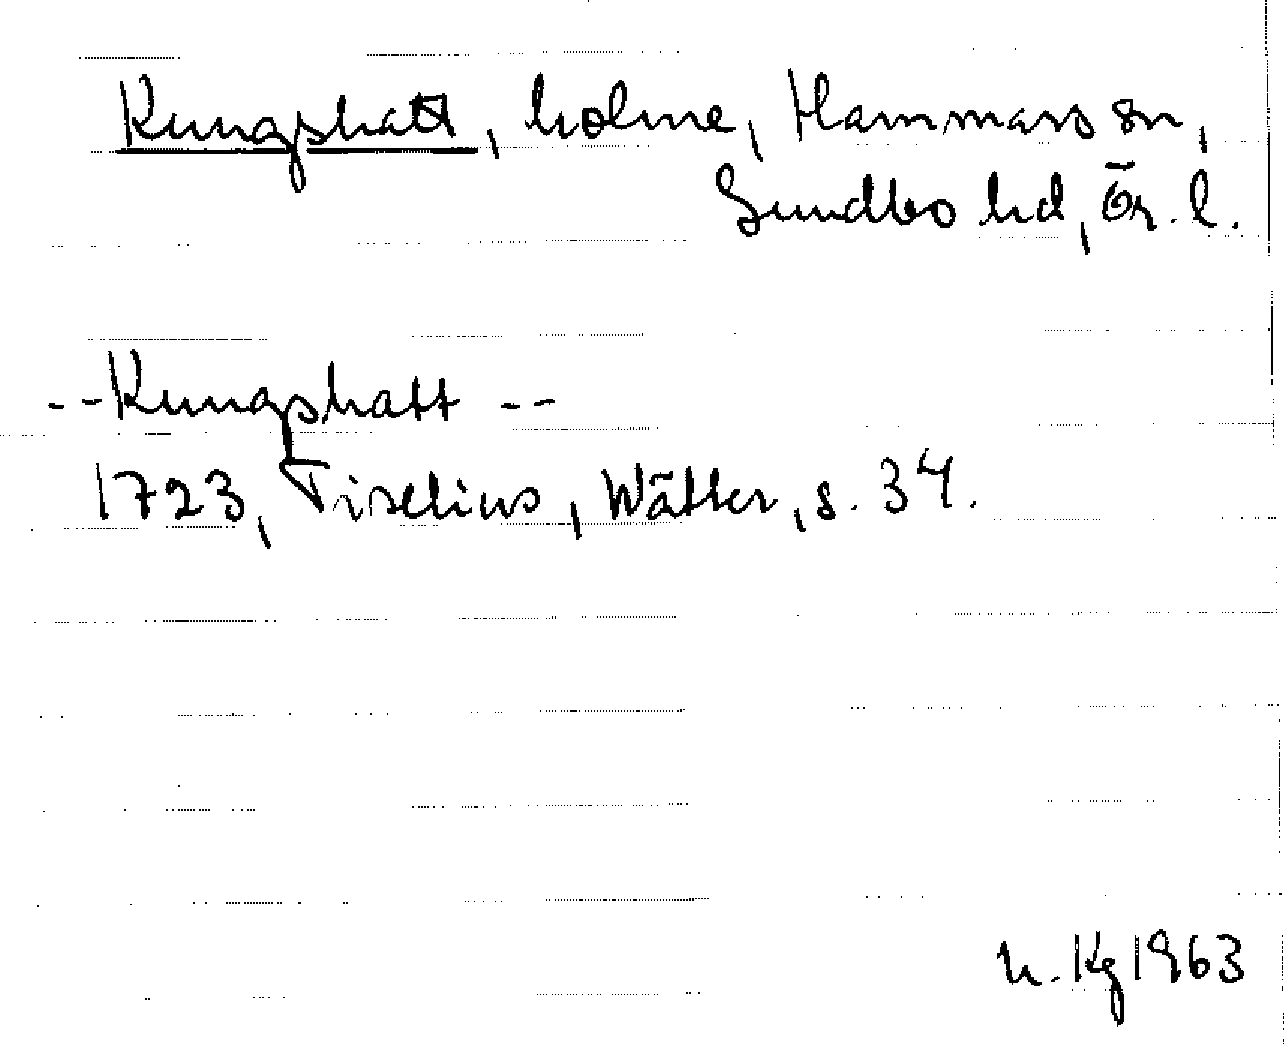 Kungshatt, holme, Hammars sn,
Sundbo hd, Ör. l.
--Kungshatt --
1723, Tiselius, Wätter, s. 34.
h. Kg 1963